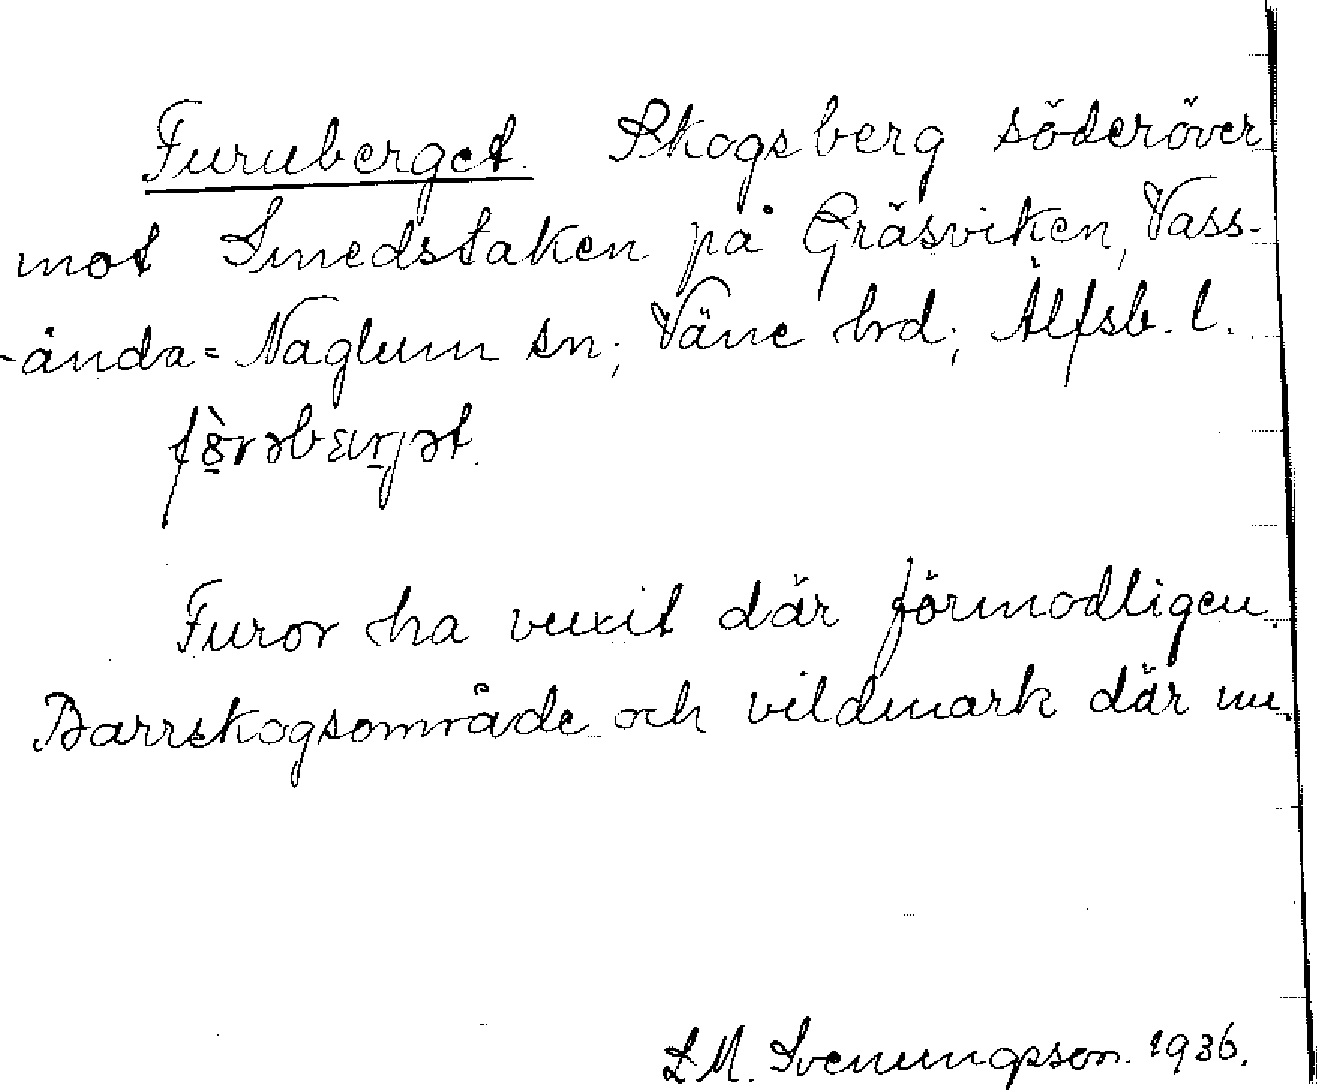 Furuberget. Skogsberg söderöver
mot Smedstaken på Gräsviken, Vass-
-ända=Naglum sn; Väne hd; Älfsb. l.
Furor ha vuxit där förmodligen.
Barrskogsområde och vildmark där nu.
L M. Svenungsson. 1936.